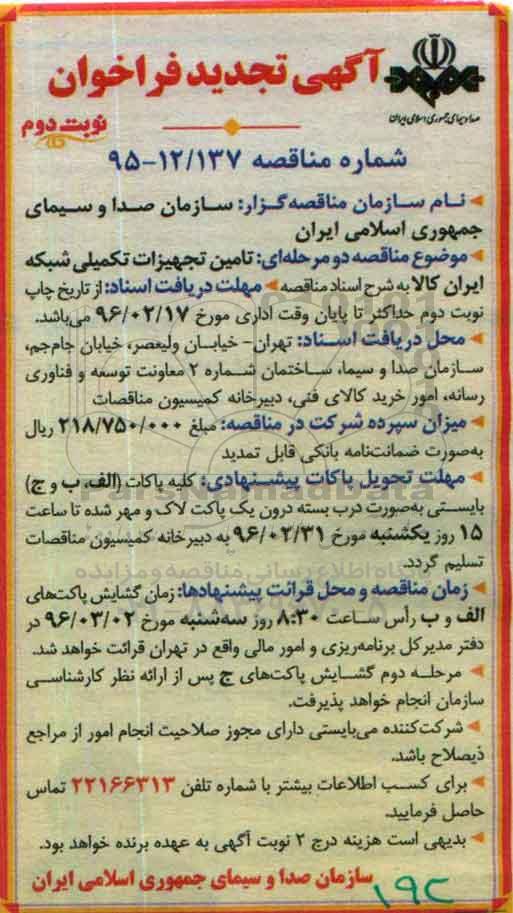 آگهی تجدید فراخوان
صدا و سیمای جمهوری اسلامی ایران
نوبت دوم
شماره مناقصه ۱۲/۱۳۷-۹۵
نام سازمان مناقصه‌گزار: سازمان صدا و سیمای
جمهوری اسلامی ایران
موضوع مناقصه دو مرحله‌ای: تامین تجهیزات تکمیلی شبکه
ایران کالا به شرح اسناد مناقصه مهلت دریافت اسناد: از تاریخ چاپ
نوبت دوم حداکثر تا پایان وقت اداری مورخ ۹۶/۰۲/۱۷ می‌باشد.
محل دریافت اسناد: تهران- خیابان ولیعصر، خیابان جام‌جم،
سازمان صدا و سیما، ساختمان شماره ۲ معاونت توسعه و فناوری
رسانه، امور خرید کالای فنی، دبیرخانه کمیسیون مناقصات
میزان سپرده شرکت در مناقصه: مبلغ ۲۱۸/۷۵۰/۰۰۰ ریال
به‌صورت ضمانت‌نامه بانکی قابل تمدید
مهلت تحویل پاکات پیشنهادی: کلیه پاکات (الف، ب و ج)
بایستی به‌صورت درب بسته درون یک پاکت لاک و مهر شده تا ساعت
۱۵ روز یکشنبه مورخ ۹۶/۰۲/۳۱ به دبیرخانه کمیسیون مناقصات
تسلیم گردد.
زمان مناقصه و محل قرائت پیشنهادها: زمان گشایش پاکت‌های
الف و ب رأس ساعت ۸:۳۰ روز سه‌شنبه مورخ ۹۶/۰۳/۰۲ در
دفتر مدیرکل برنامه‌ریزی و امور مالی واقع در تهران قرائت خواهد شد.
مرحله دوم گشایش پاکت‌های ج پس از ارائه نظر کارشناسی
سازمان انجام خواهد پذیرفت.
شرکت‌کننده می‌بایستی دارای مجوز صلاحیت انجام امور از مراجع
ذیصلاح باشد.
برای کسب اطلاعات بیشتر با شماره تلفن ۲۲۱۶۶۳۱۳ تماس
حاصل فرمایید.
بدیهی است هزینه درج ۲ نوبت آگهی به عهده برنده خواهد بود.
سازمان صدا و سیمای جمهوری اسلامی ایران
۱۹۲
ParsNamadData
پایگاه اطلاع رسانی مناقصه و مزایده